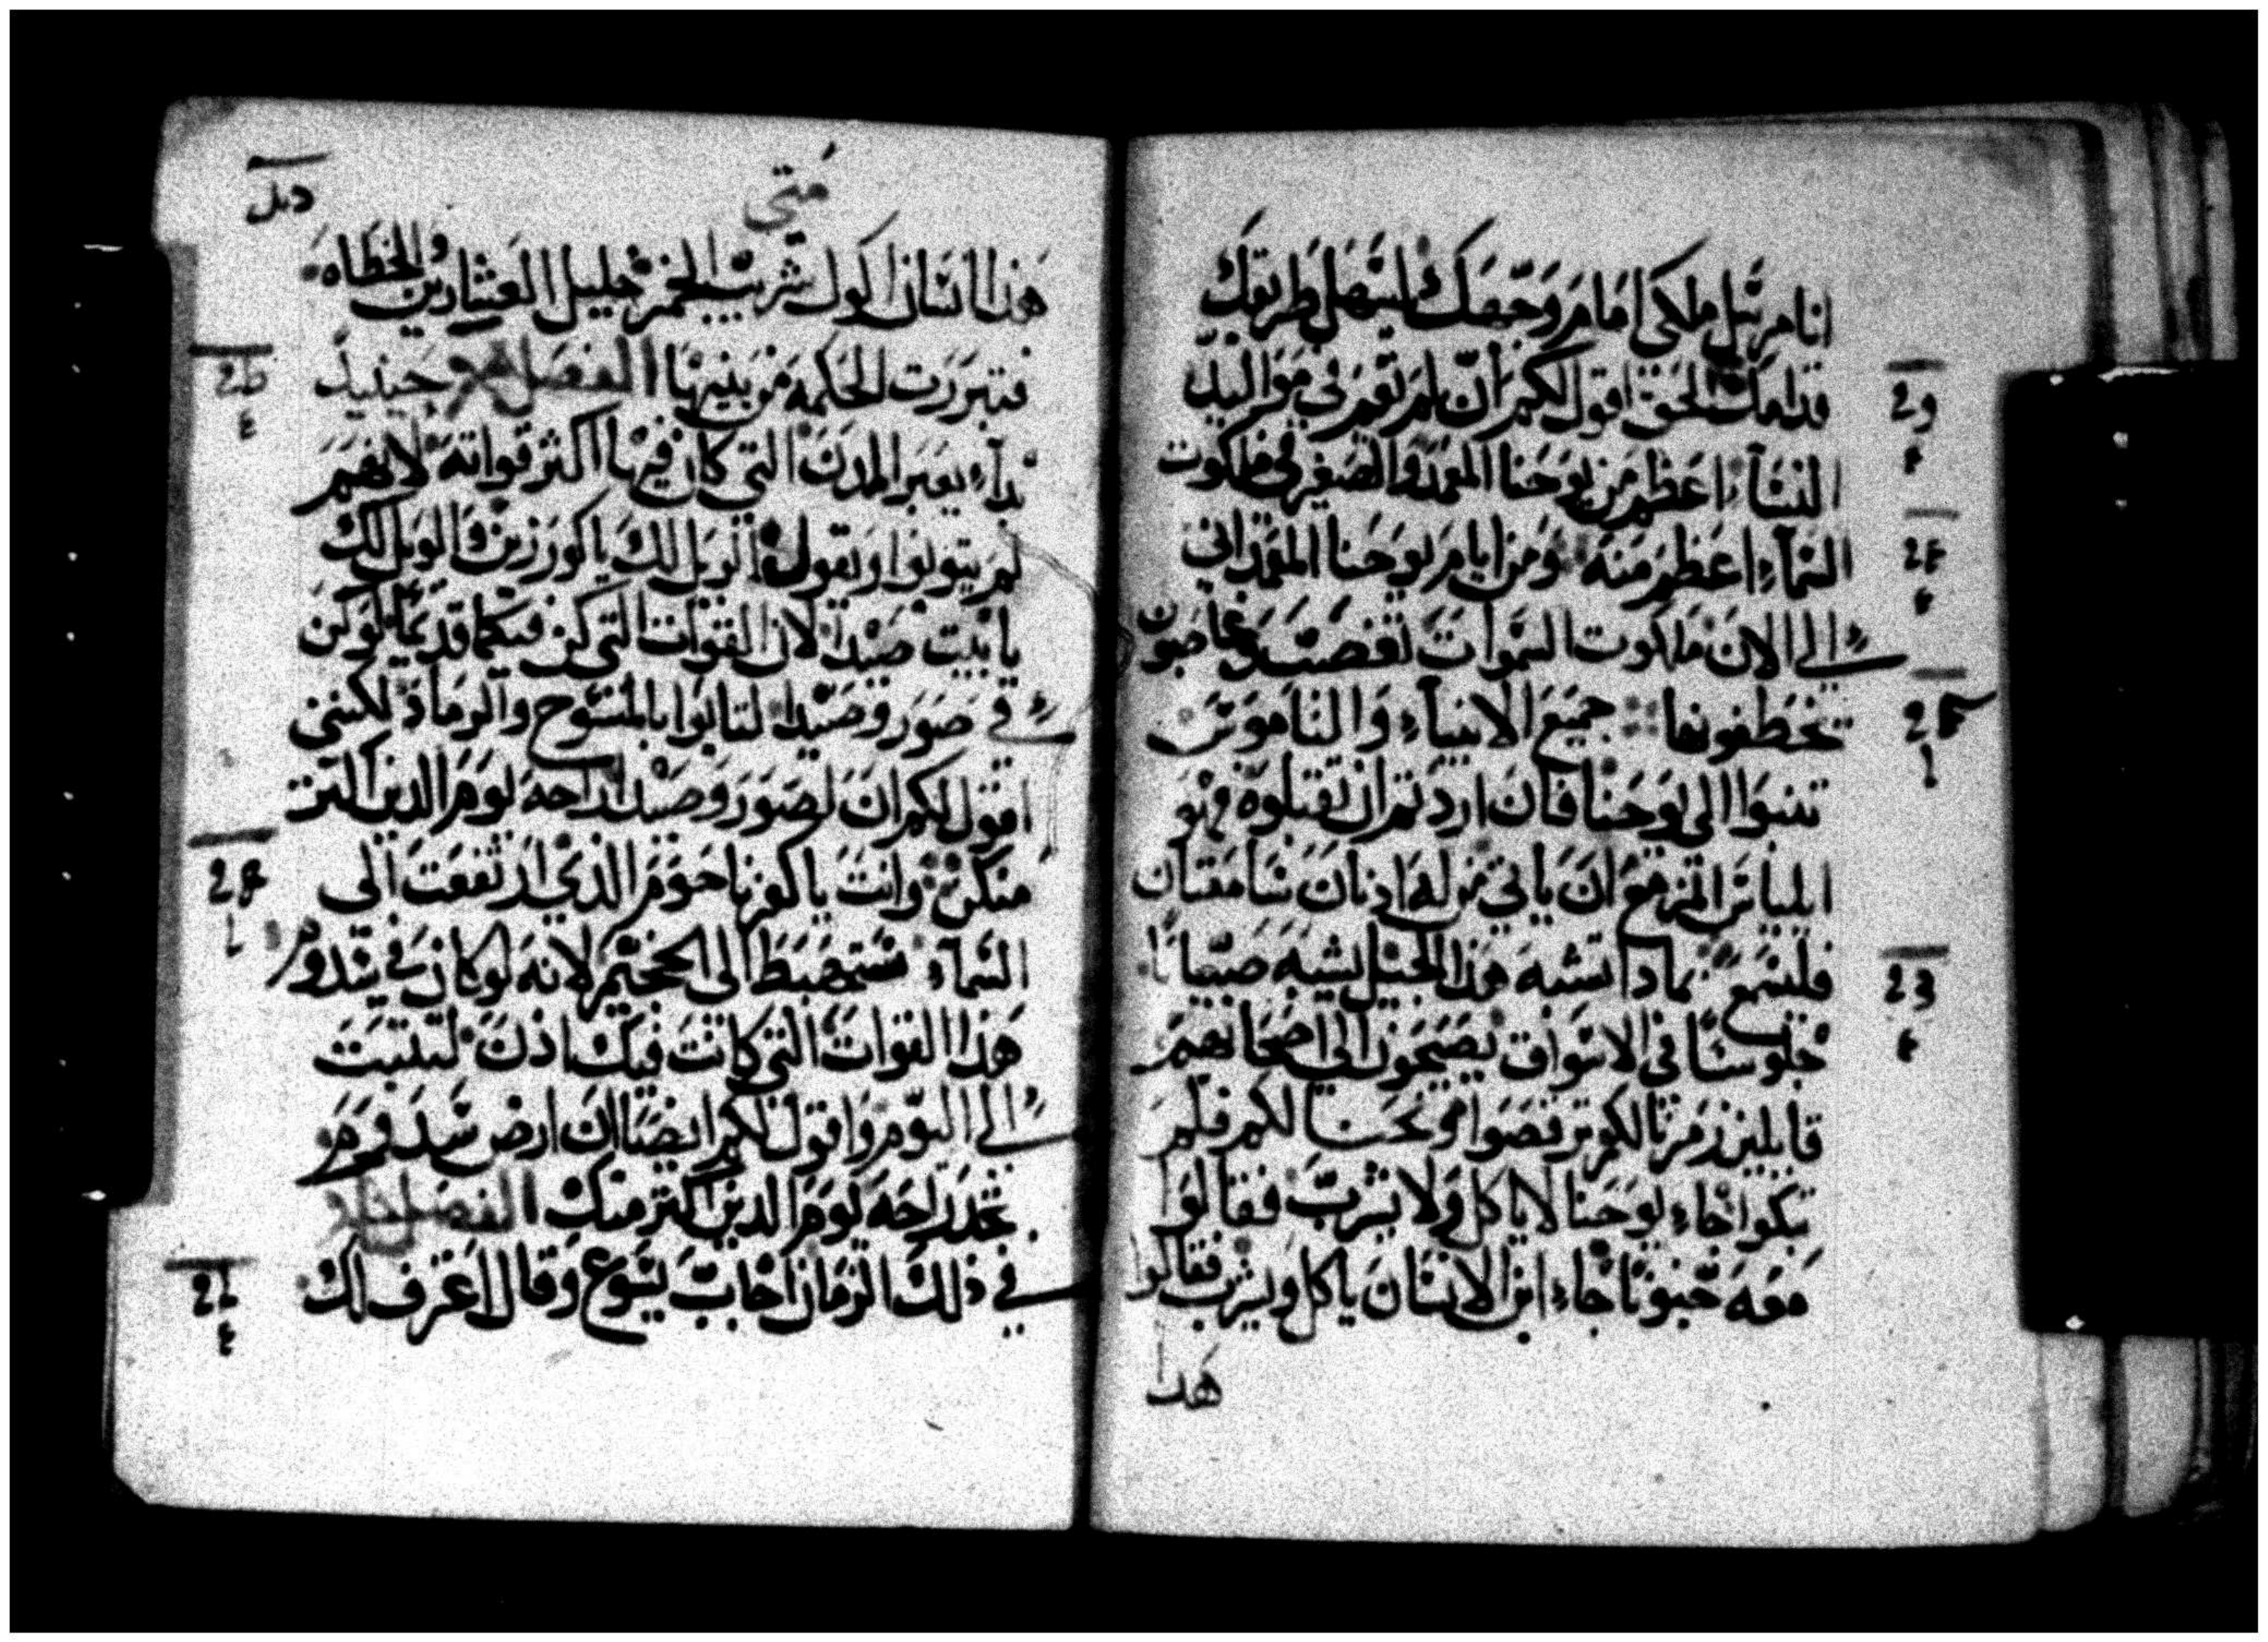 انا مرسل ملكي امام وجهك ليسهل طريقك
قدامك الحق اقول لكم ان لم تقم في مواليد
النساء اعظم من يوحنا المعمد والصغير في ملكوت
السماء اعظم منه ومن ايام يوحنا المعمداني
الى الان ملكوت السموات تغصب وغاصبون
تخطفونها جميع الانبياء والناموس
تنبوا الى يوحنا فان اردتم ان تقبلوه فهو
ايلياس المزمع ان ياتي من له اذنان سامعتان
فليسمع بماذا تشبه هذا الجيل يشبه صبيانا
جلوسا في الاسواق يصيحون الى اصحابهم
قايلين زمرنا لكم ترقصوا ونحنا لكم فلم
تبكوا جاء يوحنا لا ياكل ولا يشرب فقالوا
معه جنونا جاء ابن الانسان ياكل ويشرب فقالوا
هذا
متى
هذا انسان اكول شريب الخمر خليل العشارين والخطاه
فتبررت الحكمة من بنيها الفصل حينيد
بدا يعير المدن التي كان فيها اكثر قواته لانهم
لم يتوبوا ويقول الويل لك يا كورزين الويل لك
يا بيت صيدا لان القوات التي كن فيكما قديما لو كن
في صور وصيدا لتابوا بالمسوح والرماد لكنني
اقول لكم ان لصور وصيدا راحه يوم الدين اكثر
منكن وانت يا كفرناحوم الذي ارتفعت الى
السماء ستهبط الى الجحيم لانه لو كان في سدوم
هذا القوات التي كانت فيك اذن لتبتت
الى اليوم واقول لكم ايضا ان ارض سدوم
تجد راحه يوم الدين اكثر منك الفصل
في ذلك الزمان اجاب يسوع وقال اعترف لك